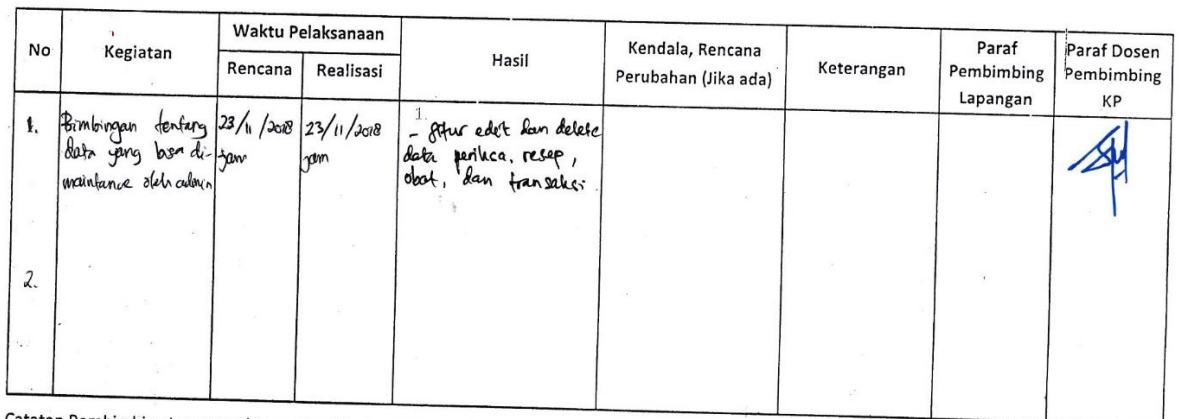 No
Kegiatan
Waktu Pelaksanaan
Rencana
Realisasi
Hasil
Kendala, Rencana
Perubahan (Jika ada)
Keterangan
Paraf
Pembimbing
Lapangan
Paraf Dosen
Pembimbing
KP
1.
Bimbingan tentang
data yang bisa di-
maintance oleh admin
23/11/2018
jam
23/11/2018
jam
1.
- fitur edit dan delete
data periksa, resep,
obat, dan transaksi
2.